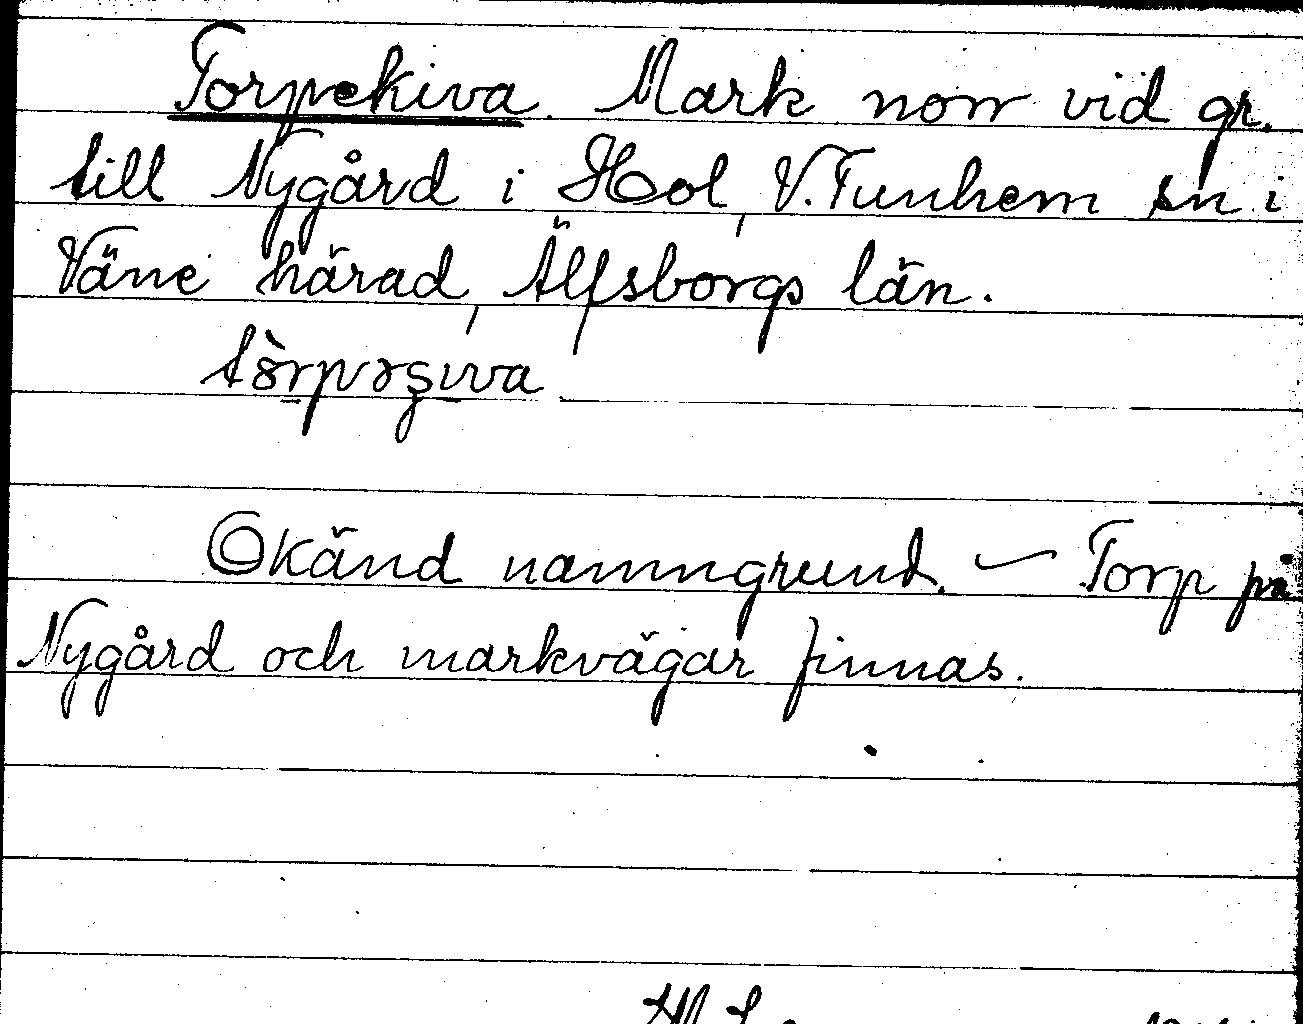 Torpekiva. Mark norr vid gr.
till Nygård i Hol, V. Tunhem sn i
Väne härad, Älfsborgs län.
Okänd namngrund. – Torp på
Nygård och markvägar finnas.